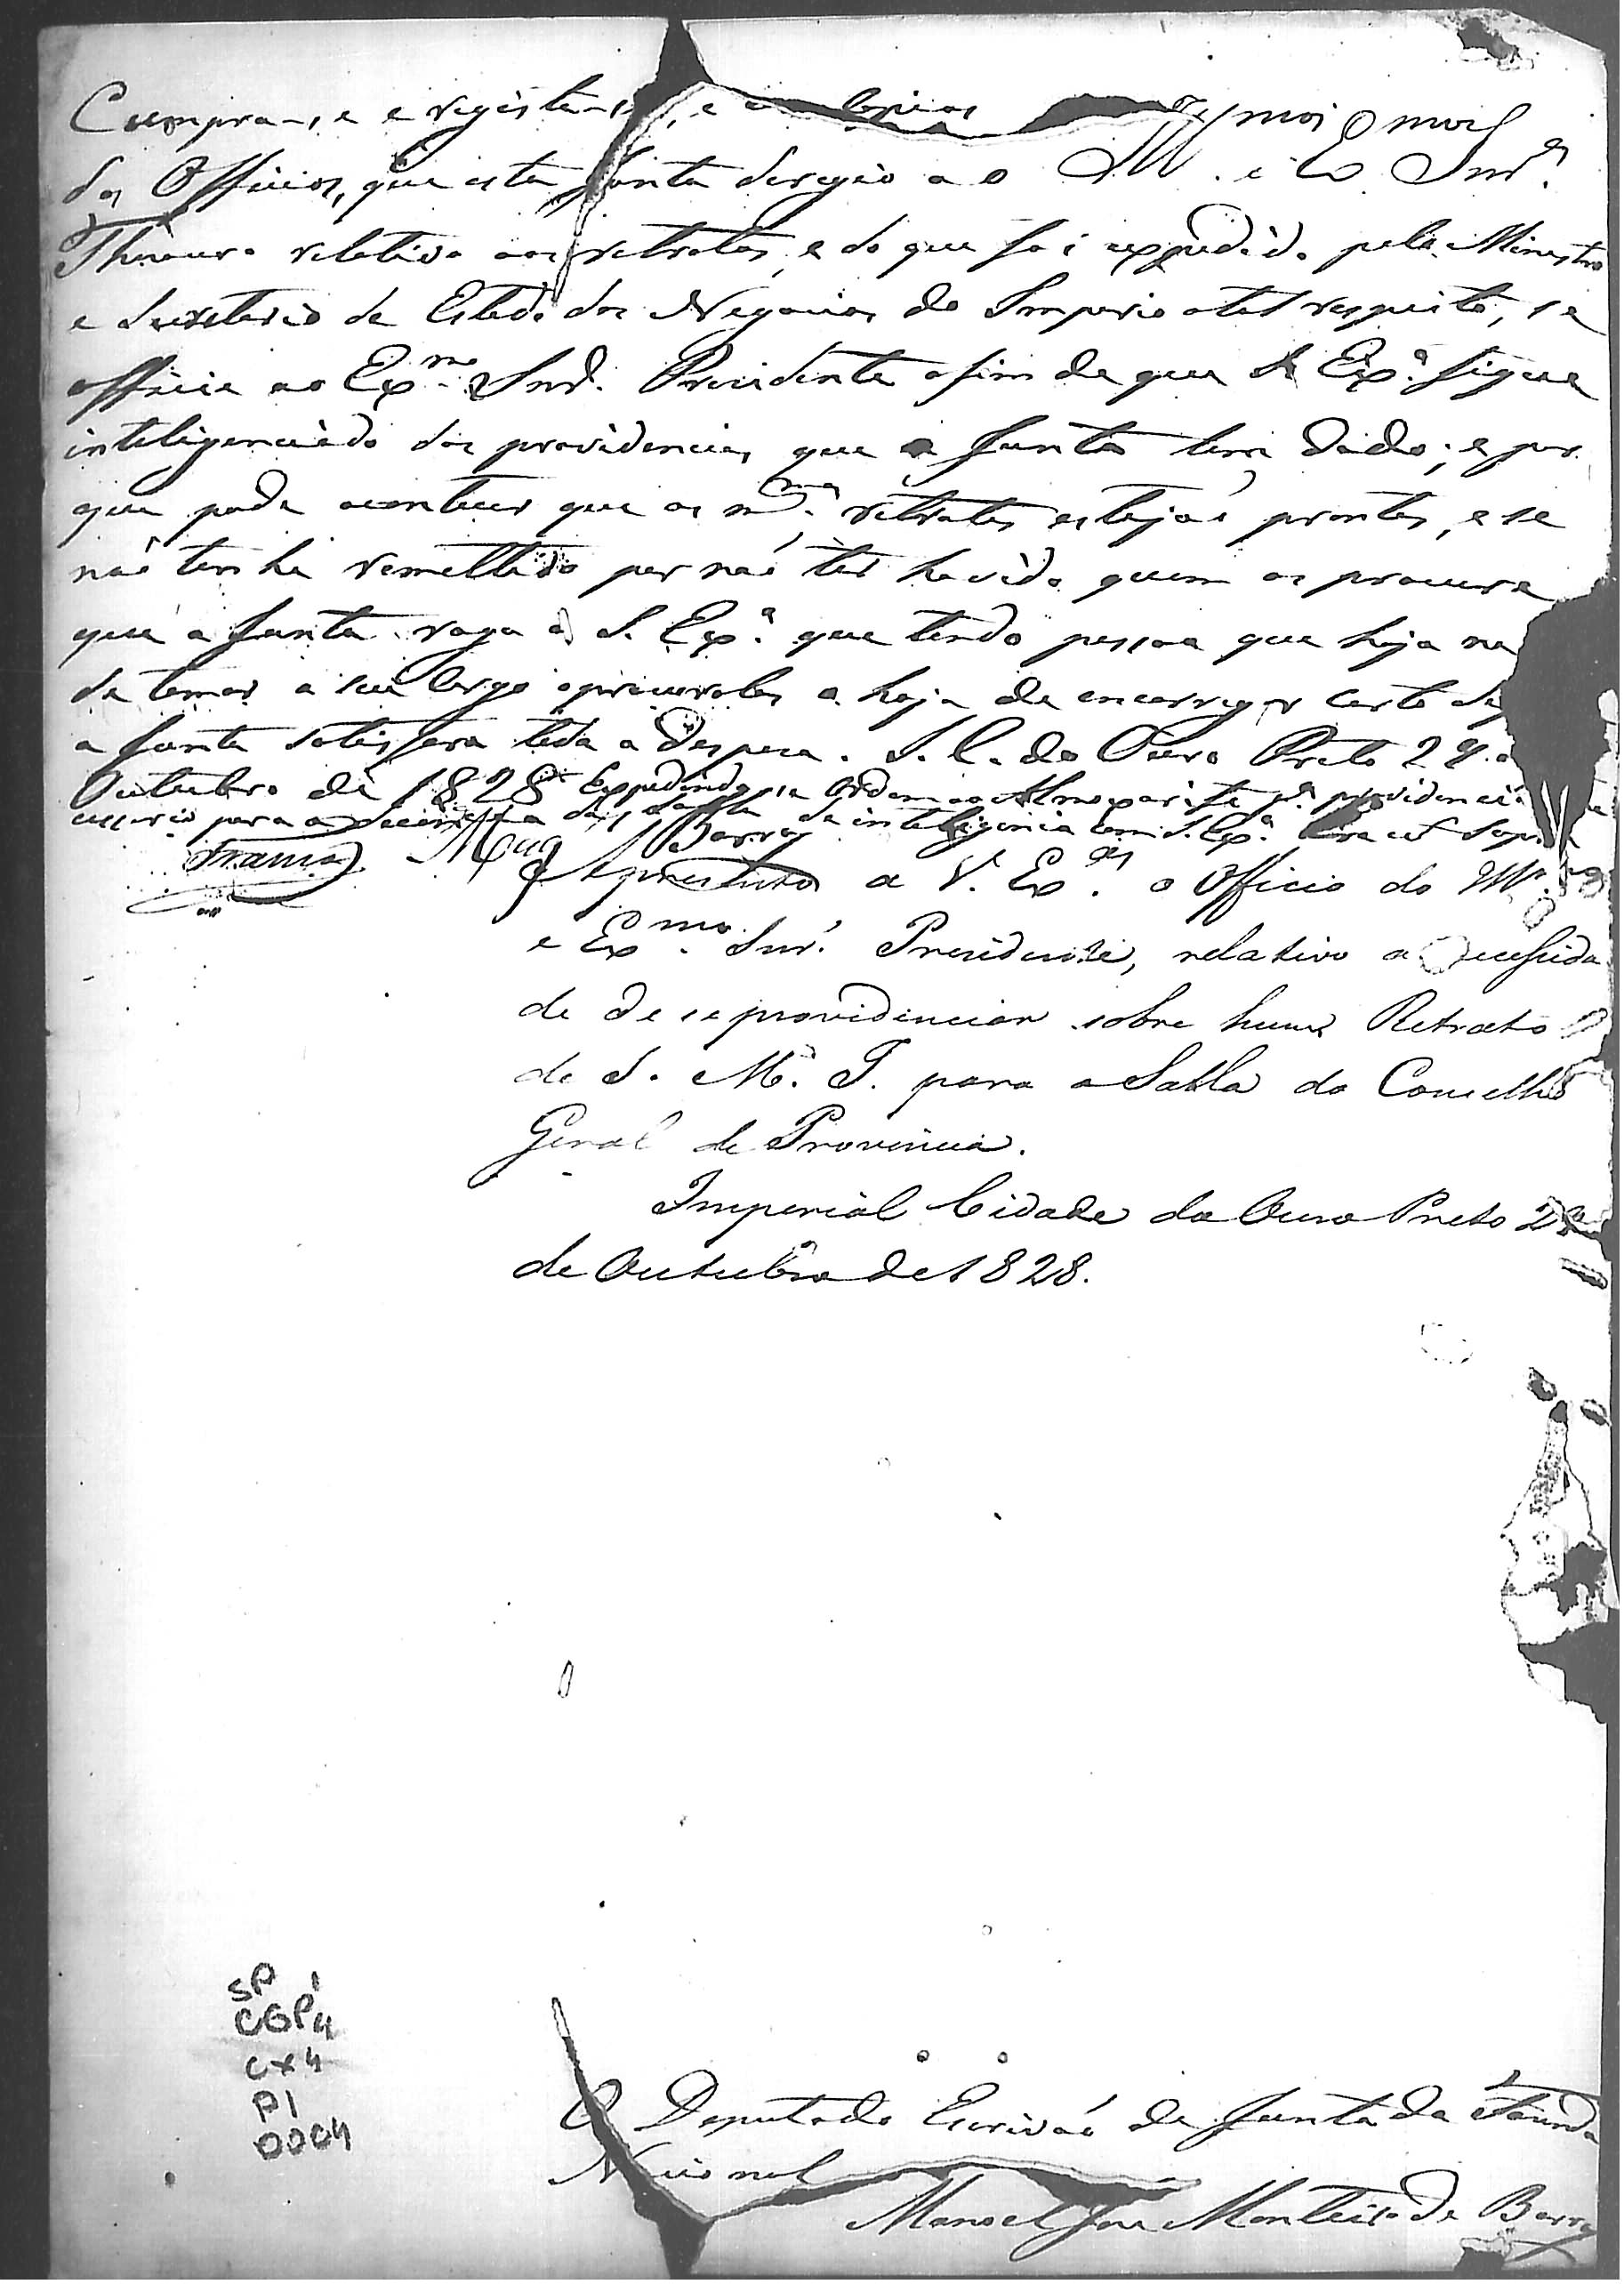 Cumpra-se e registe-se, e copias
dos Officios, que esta Junta deregio ao
Thesouro relativo aos retratos, e do que foi expedido pelo Ministro
e Secretario de Estado dos Negocios do Imperio a tal respeito, se
officie ao Exmo Snr. Presidente afim de que S. Exa. fique
inteligenciado das providencias, que a Junta tem dado; e por
que pode acontecer que os mmos. retratos estejaõ prontos, e se
naõ tenha remettido por naõ ter havido quem os procure
que a Junta roga a S. Exa. que tendo pessoa que haja
de tomar a seu cargo o procuralos a haja de encarregar certo
a Junta satisfará toda a despeza. I. C. do Ouro Preto 29
Outubro de 1828 Expedindo-se Ordem ao Almoxarife pa. providenciar
para a da Salla de inteligencia com S. Exa.
França Barros
Apresento a V. Exas. o Officio do Illmo.
e Exmo. Snr. Presidente, relativo a necessida
de de se providenciar sobre hum Retrato
de S. M. I. para a Salla do Conselho
Geral de Provincia.
Imperial Cidade do Ouro Preto 29
de Outubro de 1828.
SP 1
CGP4
CX4
P1
D004
O Deputado Escrivaõ da Junta da Fazenda
Nacional
Manoel José Monteiro de Barros